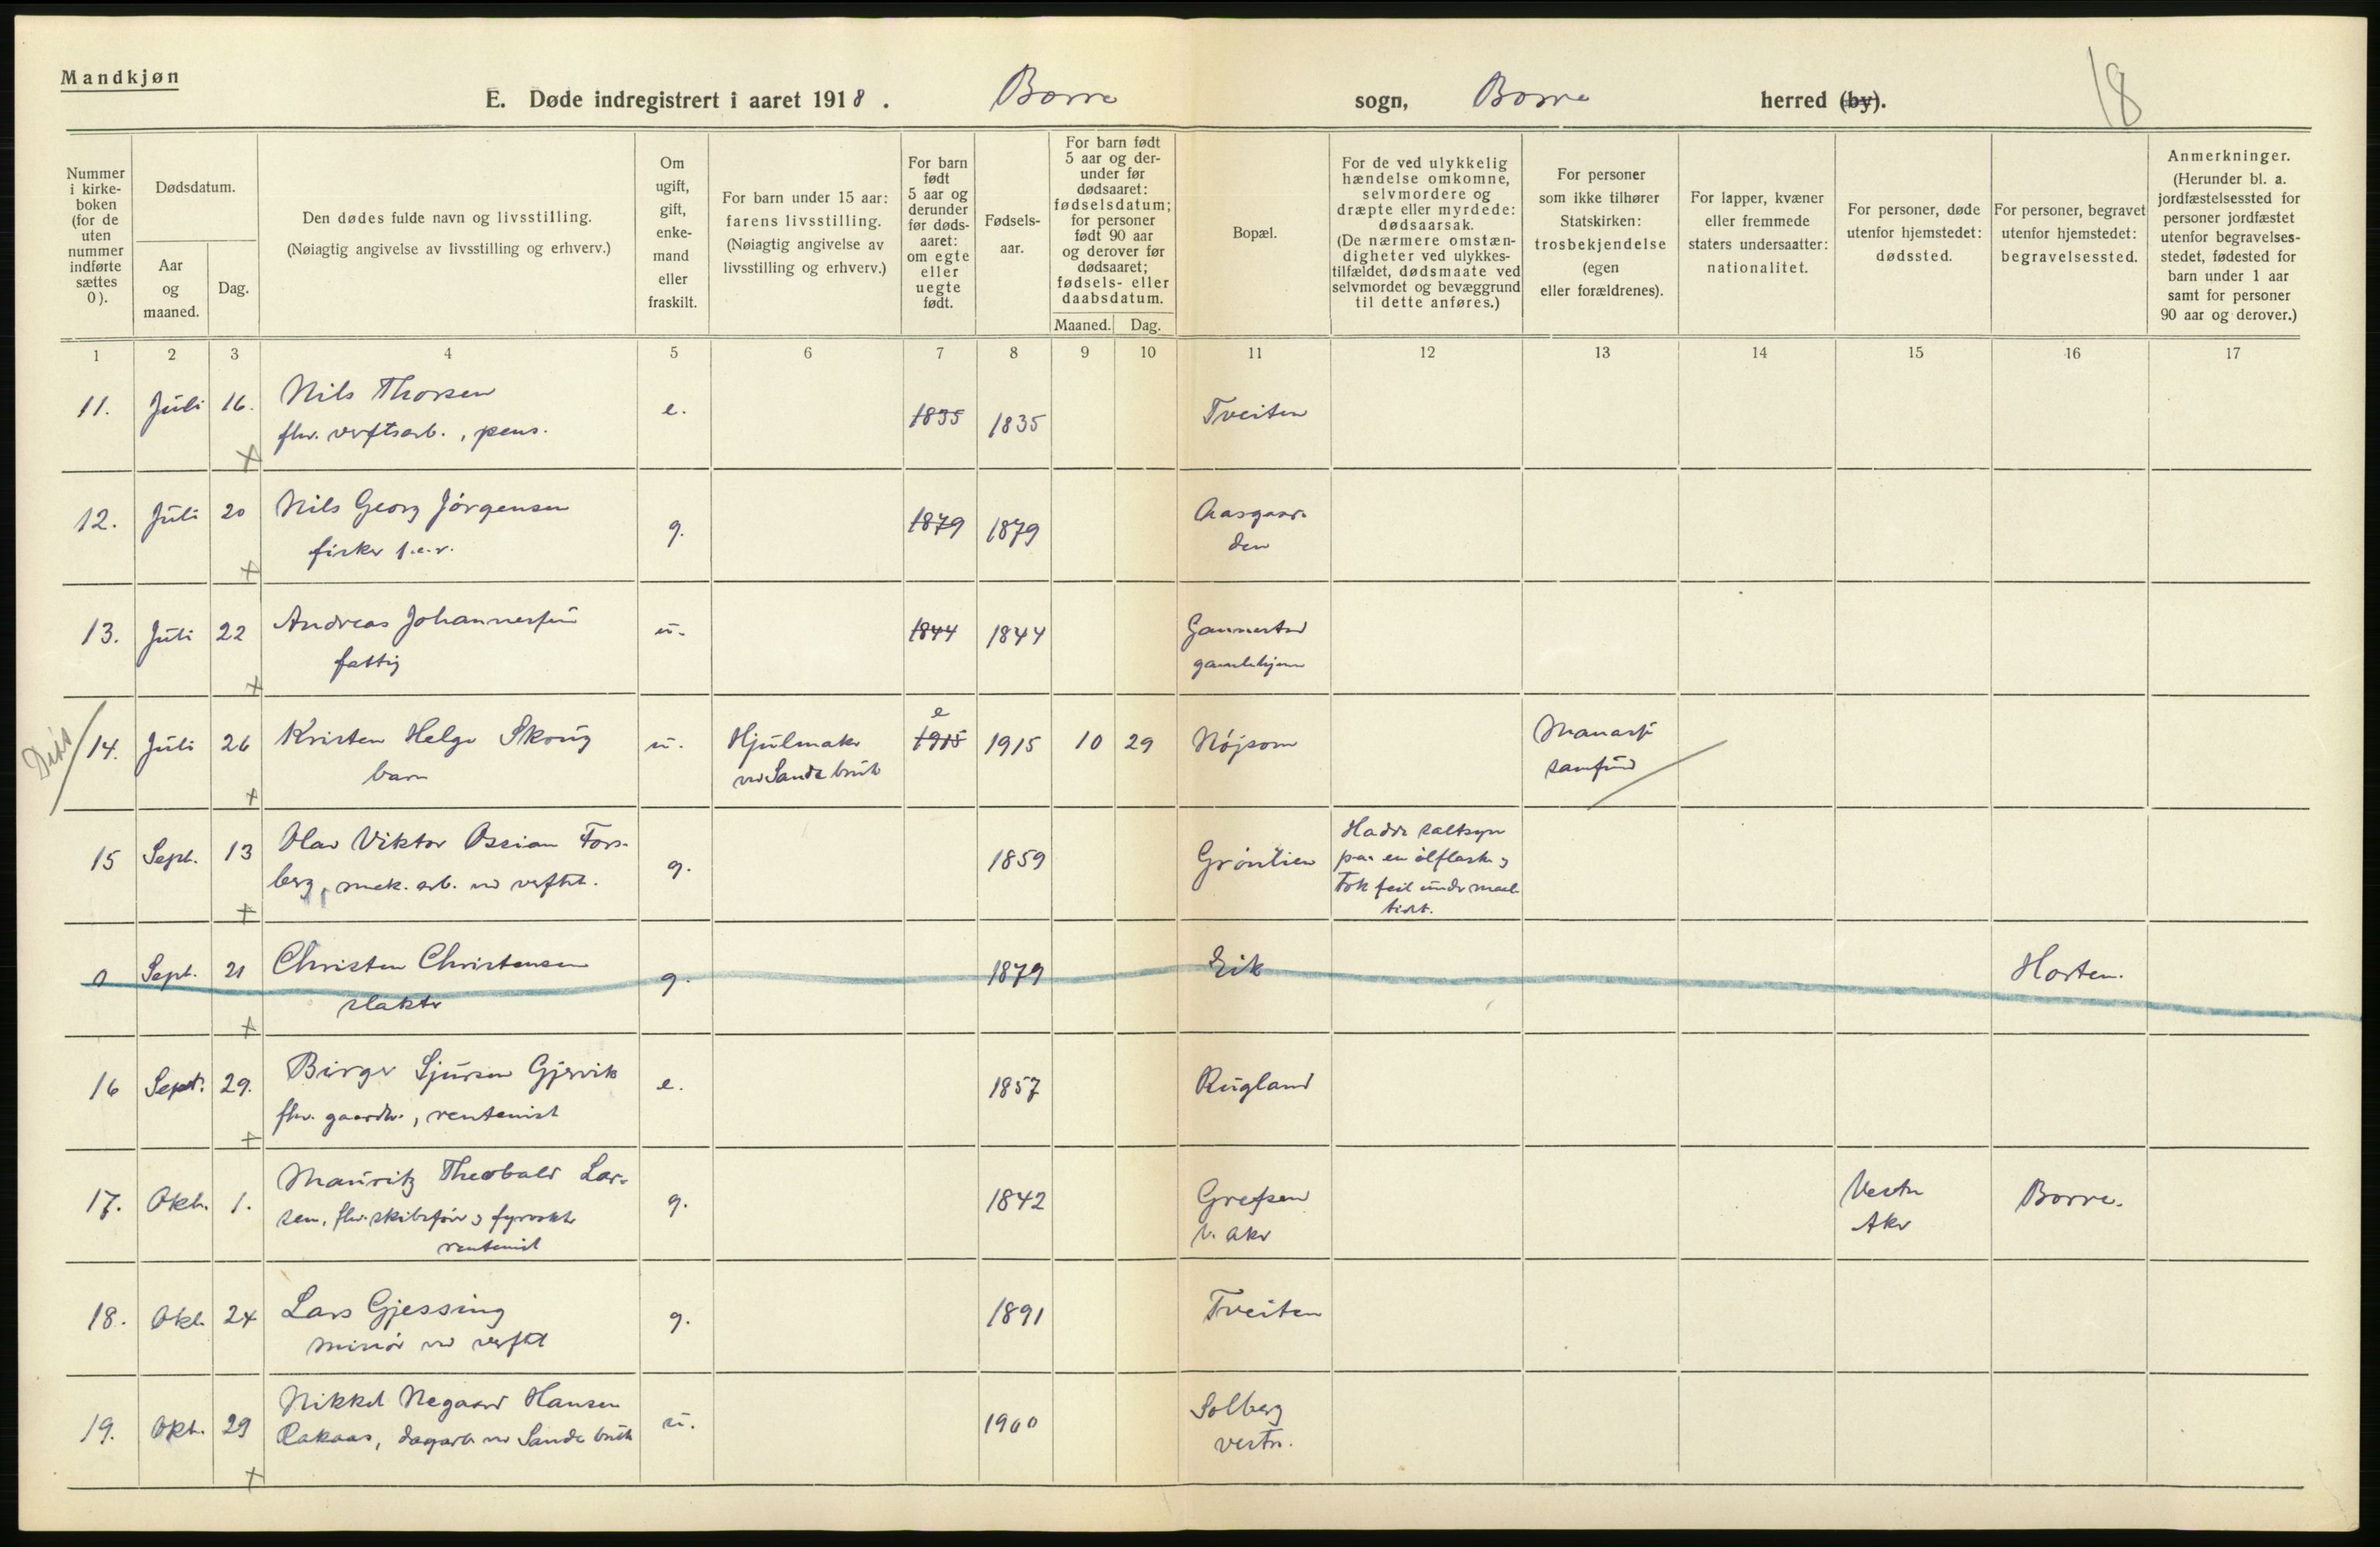 Mandkjøn
E. Døde indregistrert i aaret 1918. Borre sogn, Borre herred (by).
18
Nummer i kirke-boken (for de uten nummer indførte sættes 0).
Dødsdatum.
Aar og maaned.
Dag.
Den dødes fulde navn og livsstilling.
(Nøiagtig angivelse av livsstilling og erhverv.)
Om ugift, gift, enke-mand eller fraskilt.
For barn under 15 aar: farens livsstilling. (Nøiagtig angivelse av livsstilling og erhverv.)
For barn født 5 aar og derunder før døds-aaret: om egte eller uegte født.
Fødsels-aar.
For barn født 5 aar og der-under før dødsaaret: fødselsdatum; for personer født 90 aar og derover før dødsaaret; fødsels- eller daabsdatum.
Maaned. Dag.
Bopæl.
For de ved ulykkelig hændelse omkomne, selvmordere og dræpte eller myrdede: dødsaarsak. (De nærmere omstæn-digheter ved ulykkes-tilfældet, dødsmaate ved selvmordet og bevæggrund til dette anføres.)
For personer som ikke tilhører Statskirken: trosbekjendelse (egen eller forældrenes).
For lapper, kvæner eller fremmede staters undersaatter: nationalitet.
For personer, døde utenfor hjemstedet: dødssted.
For personer, begravet utenfor hjemstedet: begravelsessted.
Anmerkninger. (Herunder bl. a. jordfæstelsessted for personer jordfæstet utenfor begravelses-stedet, fødested for barn under 1 aar samt for personer 90 aar og derover.)
1 2 3 4 5 6 7 8 9 10 11 12 13 14 15 16 17
11. Juli 16. Nils Thorsen e. 1835 1835 Tveiten
fhv. verftsarb., pens.
12. Juli 20 Nils Georg Jörgensen g. 1879 1879 Aasgaar-
fisker s.e.r. den
13. Juli 22 Andreas Johannessen u. 1844 1844 Gannestad
fattig gamlehjem
Diss
14. Juli 26 Kristen Helge Skoug u. Hjulmaker e 1915 1915 10 29 Nöjsom
barn ved Sande bruk samfund
15 Sept. 13 Olav Viktor Ossian Fors- g. 1859 Grönlien Hadde saltsyre
berg, mek. arb. ved verftet. paa en ölflaske og
tok feil under maal-
tidet.
0 Sept. 21 Christen Christensen g. 1879 Eik Horten.
slakter
16 Sept. 29. Birger Sjursen Gjervik e. 1857 Rugland
fhv. gaardbr., rentenist
17. Okt. 1. Mauritz Theobald Lar- g. 1842 Grefsen Vestre Borre.
sen, fhv. skibsförer og fyrvokter V. Aker Aker
rentenist
18. Okt. 24 Lars Gjessing g. 1891 Tveiten
minör ved verftet
19. Okt. 29 Nikkel Negaard Hansen u. 1900 Solberg
Rakaas, dagarb. ved Sande bruk vestre.